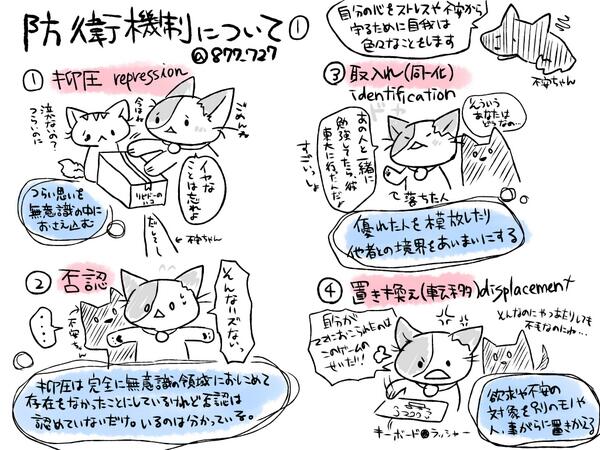 防衛機制について①
@877_727
自分の心をストレスや不安から
守るために自我は
色々なことをします
不安ちゃん
① 抑圧 repression
泣かないの?
つらいのに
今はね
ごめんね
イヤな
ことは忘れよ
だして
←不安ちゃん
つらい思いを
無意識の中に
おさえ込む
② 否認
そんなハズない。
・・・
不安ちゃん
抑圧は完全に無意識の領域におしこめて
存在をなかったことにしているけれど否認は
認めていないだけ。いるのは分かっている。
③ 取入れ(同一化)
identification
あの人と一緒に
勉強してたら、彼
東大に行ったんだよ
すごいっしょ
そういう
あなたは
どうなの…
↖落ちた人
優れた人を模放したり
他者との境界をあいまいにする
④ 置き換え(転移)displacement
自分が
ママにおこられたのは
このゲームの
せいだ!!
そんなのにやつあたりしても
不毛なのにね…
キーボード●ラッシャー
欲求や不安の
対象を別のモノや
人、事がらに置きかえる